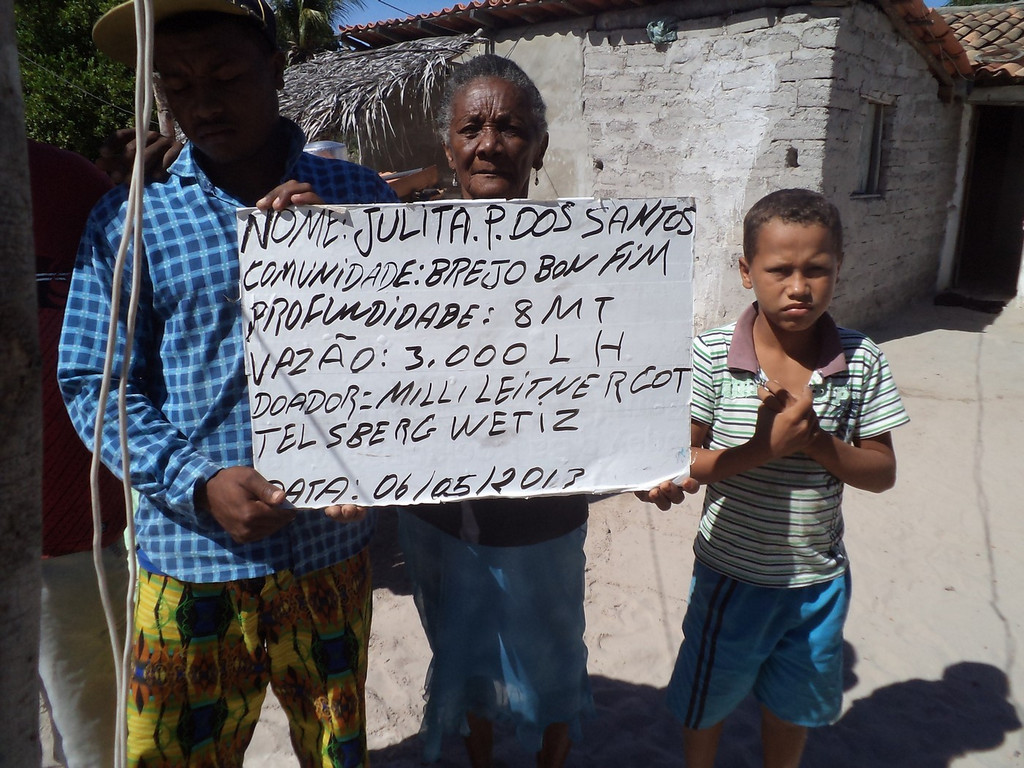 NOME: JULITA. P. DOS SANTOS
COMUNIDADE: BREJO BON FIM
PROFUNDIDADE: 8 MT
VAZÃO: 3.000 L H
DOADOR = MILLI LEITNER GOT
TELSBERG WETIZ
DATA: 06/05/2013